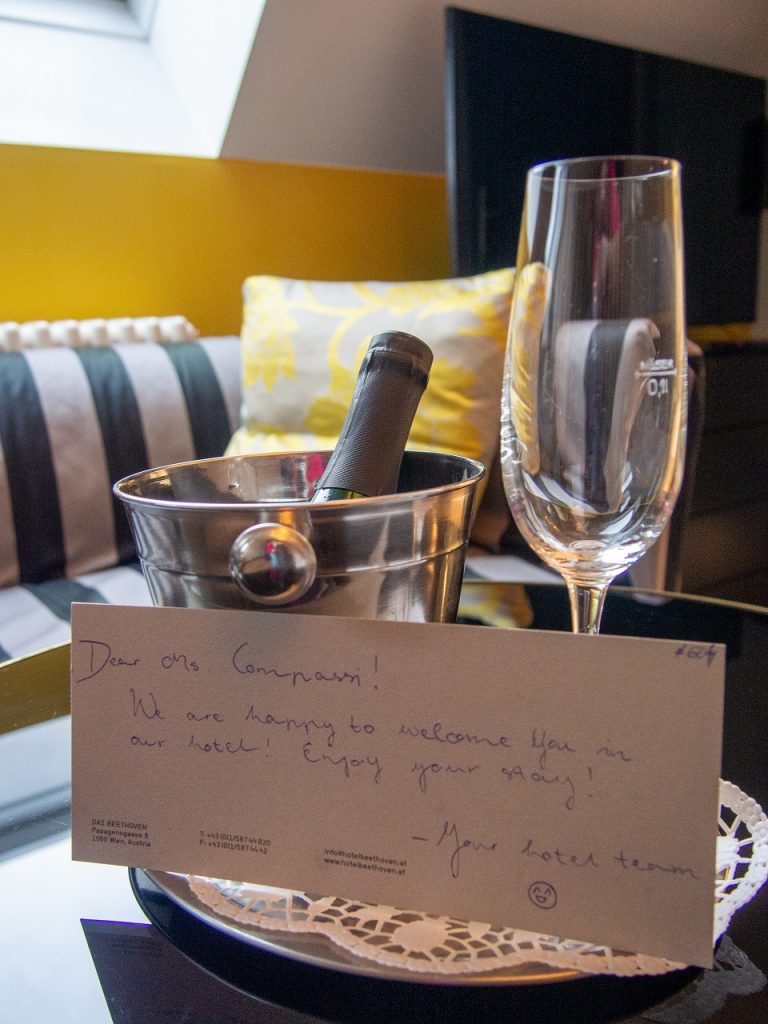 #604
Dear Ms. Compassi!
We are happy to welcome You in
our hotel! Enjoy your stay!
- Your hotel team
DAS BEETHOVEN
Papagenogasse 6
1060 Wien, Austria
T: +43 (0)1/587 44 820
F: +43 (0)1/587 44 42
info@hotelbeethoven.at
www.hotelbeethoven.at
0,1l